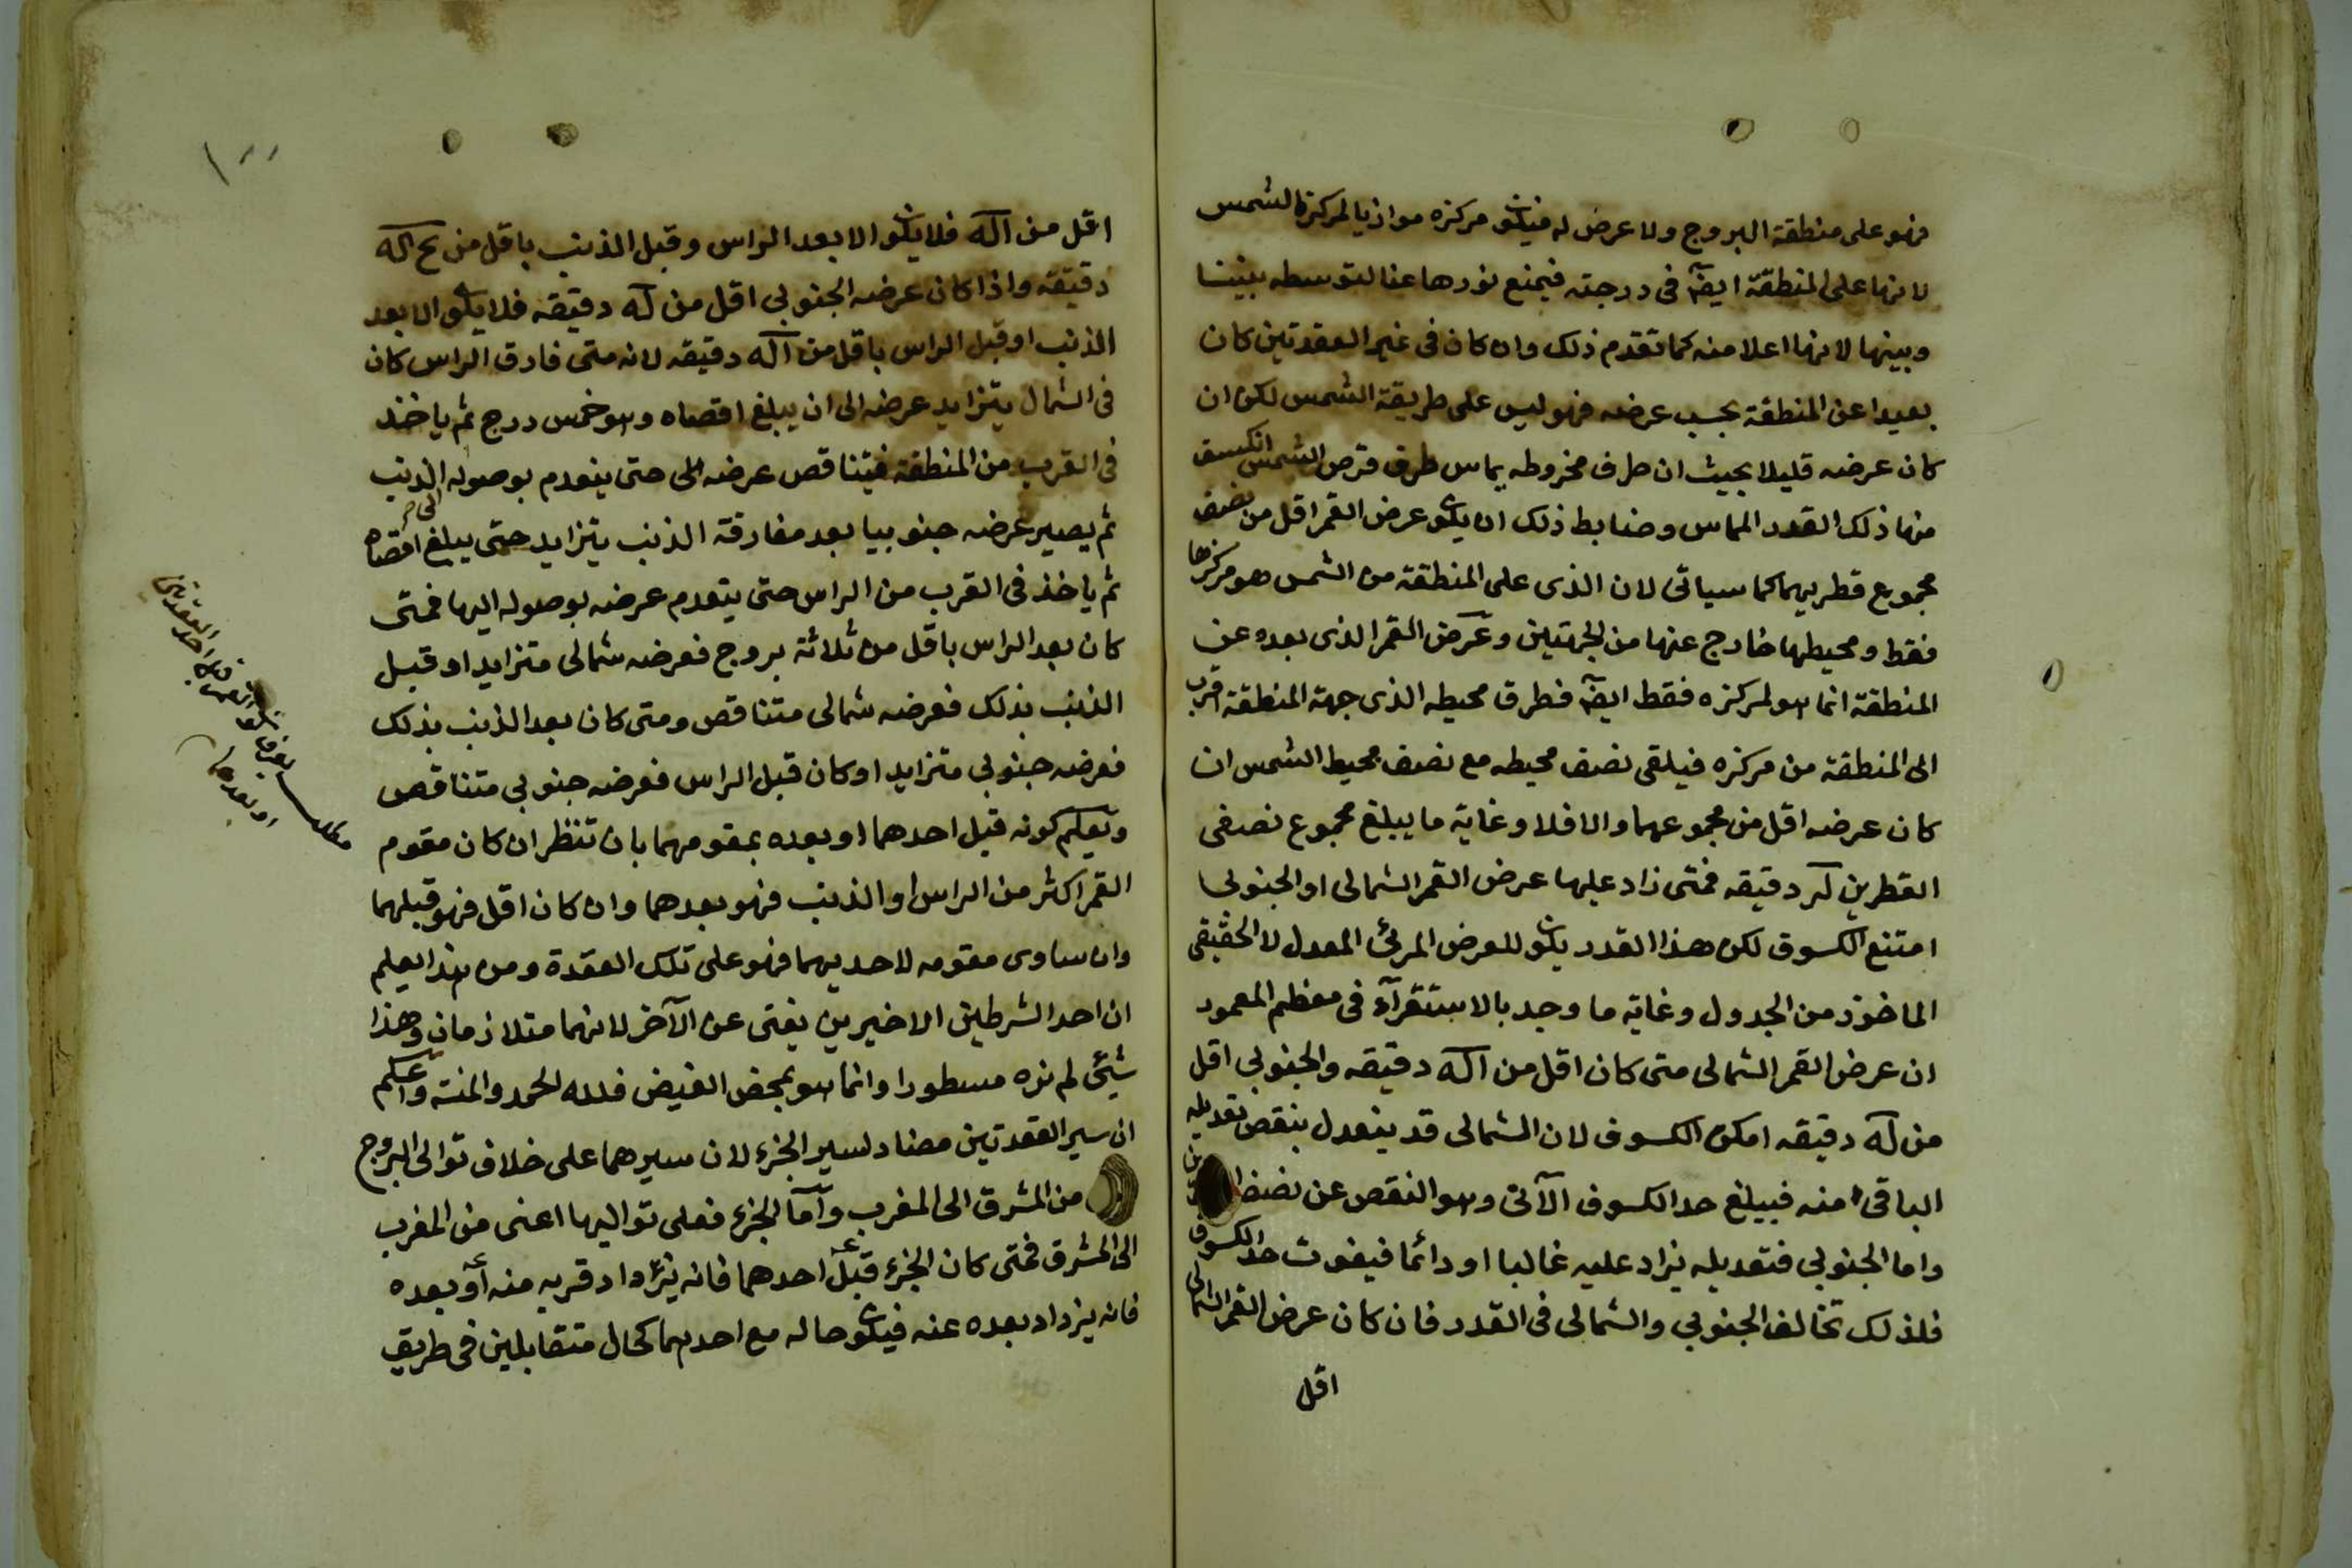 فهو على منطقة البروج ولا عرض له فيكون مركزه موازيا لمركز الشمس
لانها على المنطقة ايضا في درجته فيمنع نورها عنا لتوسطه بيننا
وبينها لانها اعلا منه كما تقدم ذلك وان كان في غير العقدتين كان
بعيدا عن المنطقة بحسب عرضه فهو ليس على طريقة الشمس لكن ان
كان عرضه قليلا بحيث ان طرف مخروطه يماس طرف قرص الشمس انكسف
منها ذلك القدر المماس وضابط ذلك ان يكون عرض القمر اقل من نصف
مجموع قطريهما كما سياتى لان الذى على المنطقة من الشمس هو مركزها
فقط ومحيطها خارج عنها من الجهتين وعرض القمر الذى بعده عن
المنطقة انما هو لمركزه فقط ايضا فطرف محيطه الذى جهة المنطقة اقرب
الى المنطقة من مركزه فيلقى نصف محيطه مع نصف محيط الشمس ان
كان عرضه اقل من مجموعهما والا فلا وغاية ما يبلغ مجموع نصفى
القطرين لد دقيقه فمتى زاد عليها عرض القمر الشمالى او الجنوبى
امتنع الكسوف لكن هذا القدر يكون للعرض المرئ المعدل لا الحقيقى
الماخوذ من الجدول وغاية ما وجد بالاستقرآء فى معظم المعمور
ان عرض القمر الشمالى متى كان اقل من ا لـه دقيقه والجنوبى اقل
من لـه دقيقه امكن الكسوف لان الشمالى قد ينعدل بنقص تعديله
الباقى منه فيبلغ حد الكسوف الآتى وهو النقص عن نصف
واما الجنوبى فتعديله يزاد عليه غالبا او دائما فيفوت حد الكسوف
فلذلك تخالف الجنوبى والشمالى فى القدر فان كان عرض القمر الشمالى
اقل
١٠٠
اقل من ا لـه فلا يكون الا بعد الراس وقبل الذنب باقل من يح لـه
دقيقة واذا كان عرضه الجنوبى اقل من لـه دقيقه فلا يكون الا بعد
الذنب او قبل الراس باقل من ا لـه دقيقه لانه متى فارق الراس كان
فى الشمال يتزايد عرضه الى ان يبلغ اقصاه وهو خمس درج ثم ياخذ
فى القرب من المنطقة فيتناقص عرضه الى حتى ينعدم بوصوله الى الذنب
ثم يصير عرضه جنوبيا بعد مفارقة الذنب يتزايد حتى يبلغ اقصاه
ثم ياخذ فى القرب من الراس حتى ينعدم عرضه بوصوله اليها فمتى
كان بعد الراس باقل من ثلاثة بروج فعرضه شمالى متزايد او قبل
الذنب بذلك فعرضه شمالى متناقص ومتى كان بعد الذنب بذلك
فعرضه جنوبى متزايد او كان قبل الراس فعرضه جنوبى متناقص
ويعلم كونه قبل احدهما او بعده بمقومهما بان تنظر ان كان مقوم
القمر اكثر من الراس او الذنب فهو بعدهما وان كان اقل فهو قبلهما
وان ساوى مقومه لاحديهما فهو على تلك العقدة ومن هذا يعلم
ان احد الشرطين الاخيرين يغنى عن الآخر لانهما متلازمان وهذا
شئ لم نره مسطورا وانما هو بمحض الفيض فلله الحمد والمنة واعلم
ان سير العقدتين مضاد لسير الجزء لان سيرهما على خلاف توالى البروج
من المشرق الى المغرب وآما الجزء فعلى تواليها اعنى من المغرب
الى المشرق فمتى كان الجزء قبل احدهما فانه يزداد قربه منه او بعده
فانه يزداد بعده عنه فيكون حاله مع احدهما كحال متقابلين فى طريق